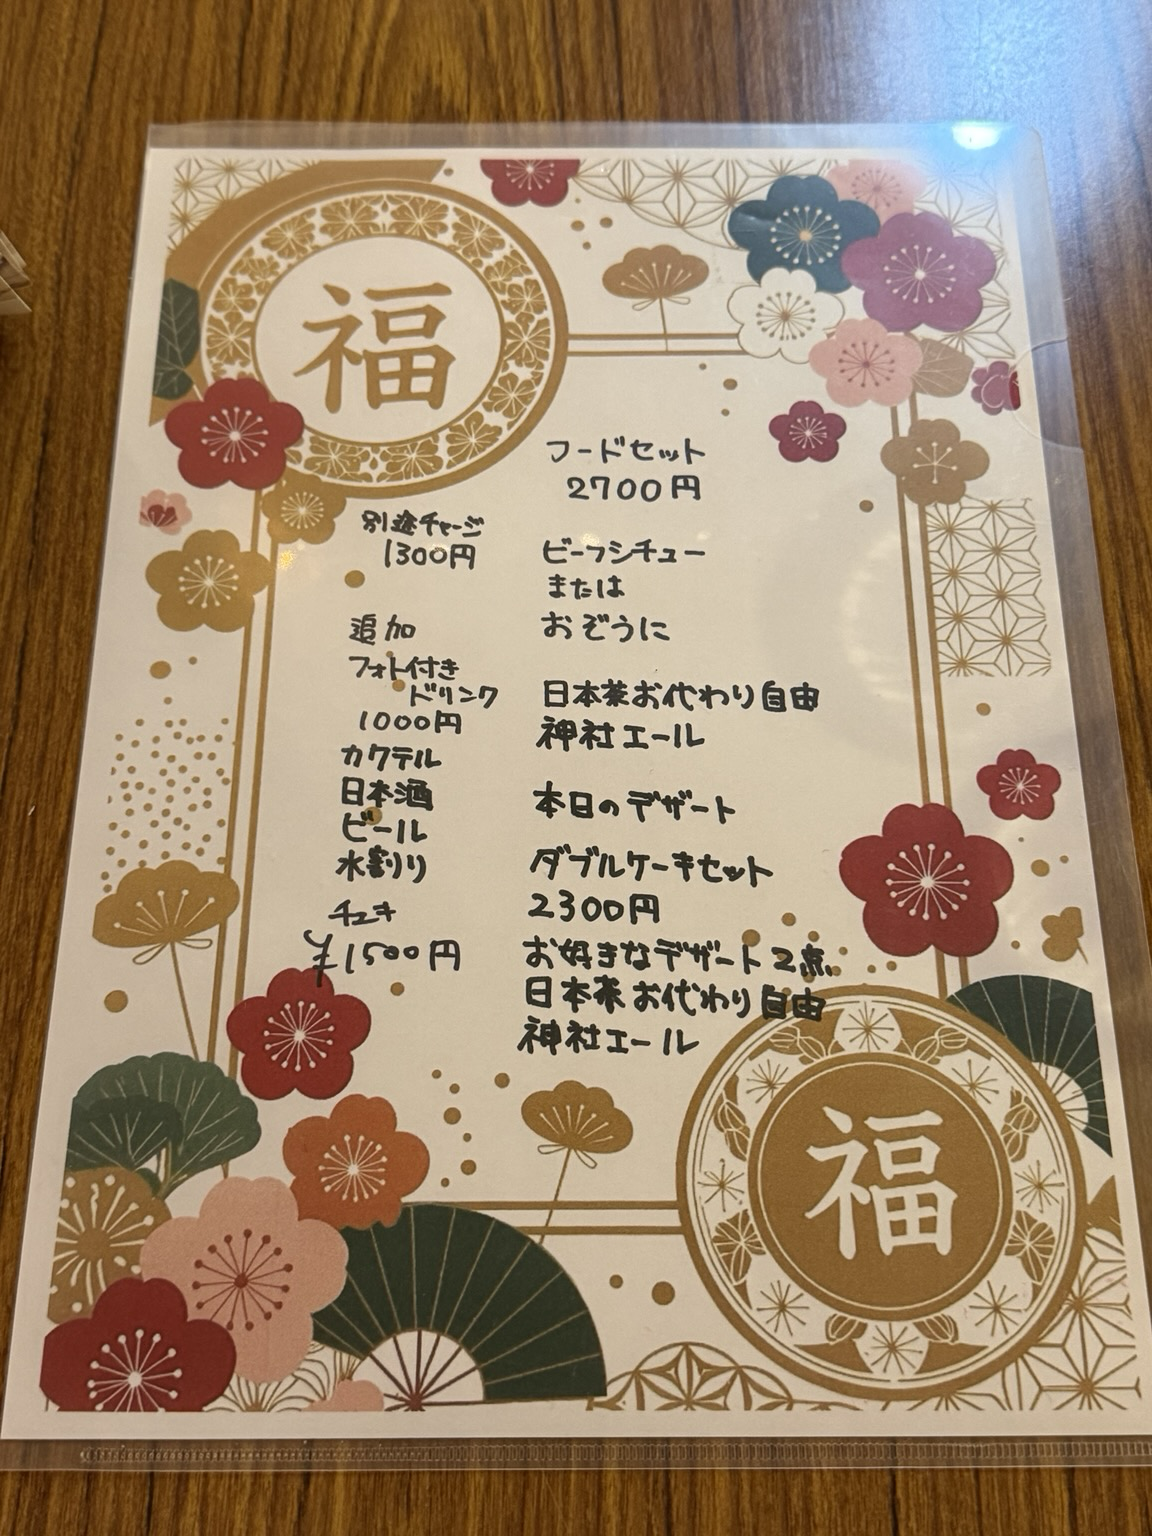 福
フードセット
2700円
別途チャージ
1300円
ビーフシチュー
または
おぞうに
追加
フォト付き
ドリンク
1000円
カクテル
日本酒
ビール
水割り
チェキ
¥1500円
日本茶お代わり自由
神社エール
本日のデザート
ダブルケーキセット
2300円
お好きなデザート2点
日本茶お代わり自由
神社エール
福